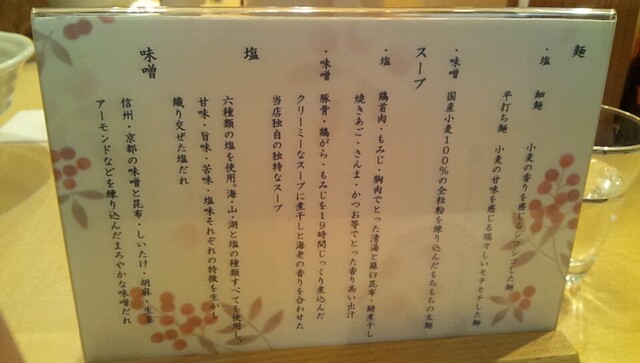 麺
・塩　細麺　小麦の香りを感じるシコシコした麺
平打ち麺　小麦の甘味を感じる瑞々しいモチモチした麺
・味噌　国産小麦100%の全粒粉を練り込んだもちもちの太麺
スープ
・塩　鶏首肉・もみじ・胸肉でとった清湯と羅臼昆布・鯖煮干し
焼きあご・さんま・かつお等でとった香り高い出汁
・味噌　豚骨・鶏がら・もみじを19時間じっくり煮込んだ
クリーミーなスープに煮干しと海老の香りを合わせた
当店独自の独特なスープ
塩
六種類の塩を使用。海・山・湖と塩の種類すべてを使用し、
甘味・旨味・苦味・塩味それぞれの特徴を生かし
織り交ぜた塩だれ
味噌
信州・京都の味噌と昆布・しいたけ・胡麻・生姜
アーモンドなどを練り込んだまろやかな味噌だれ